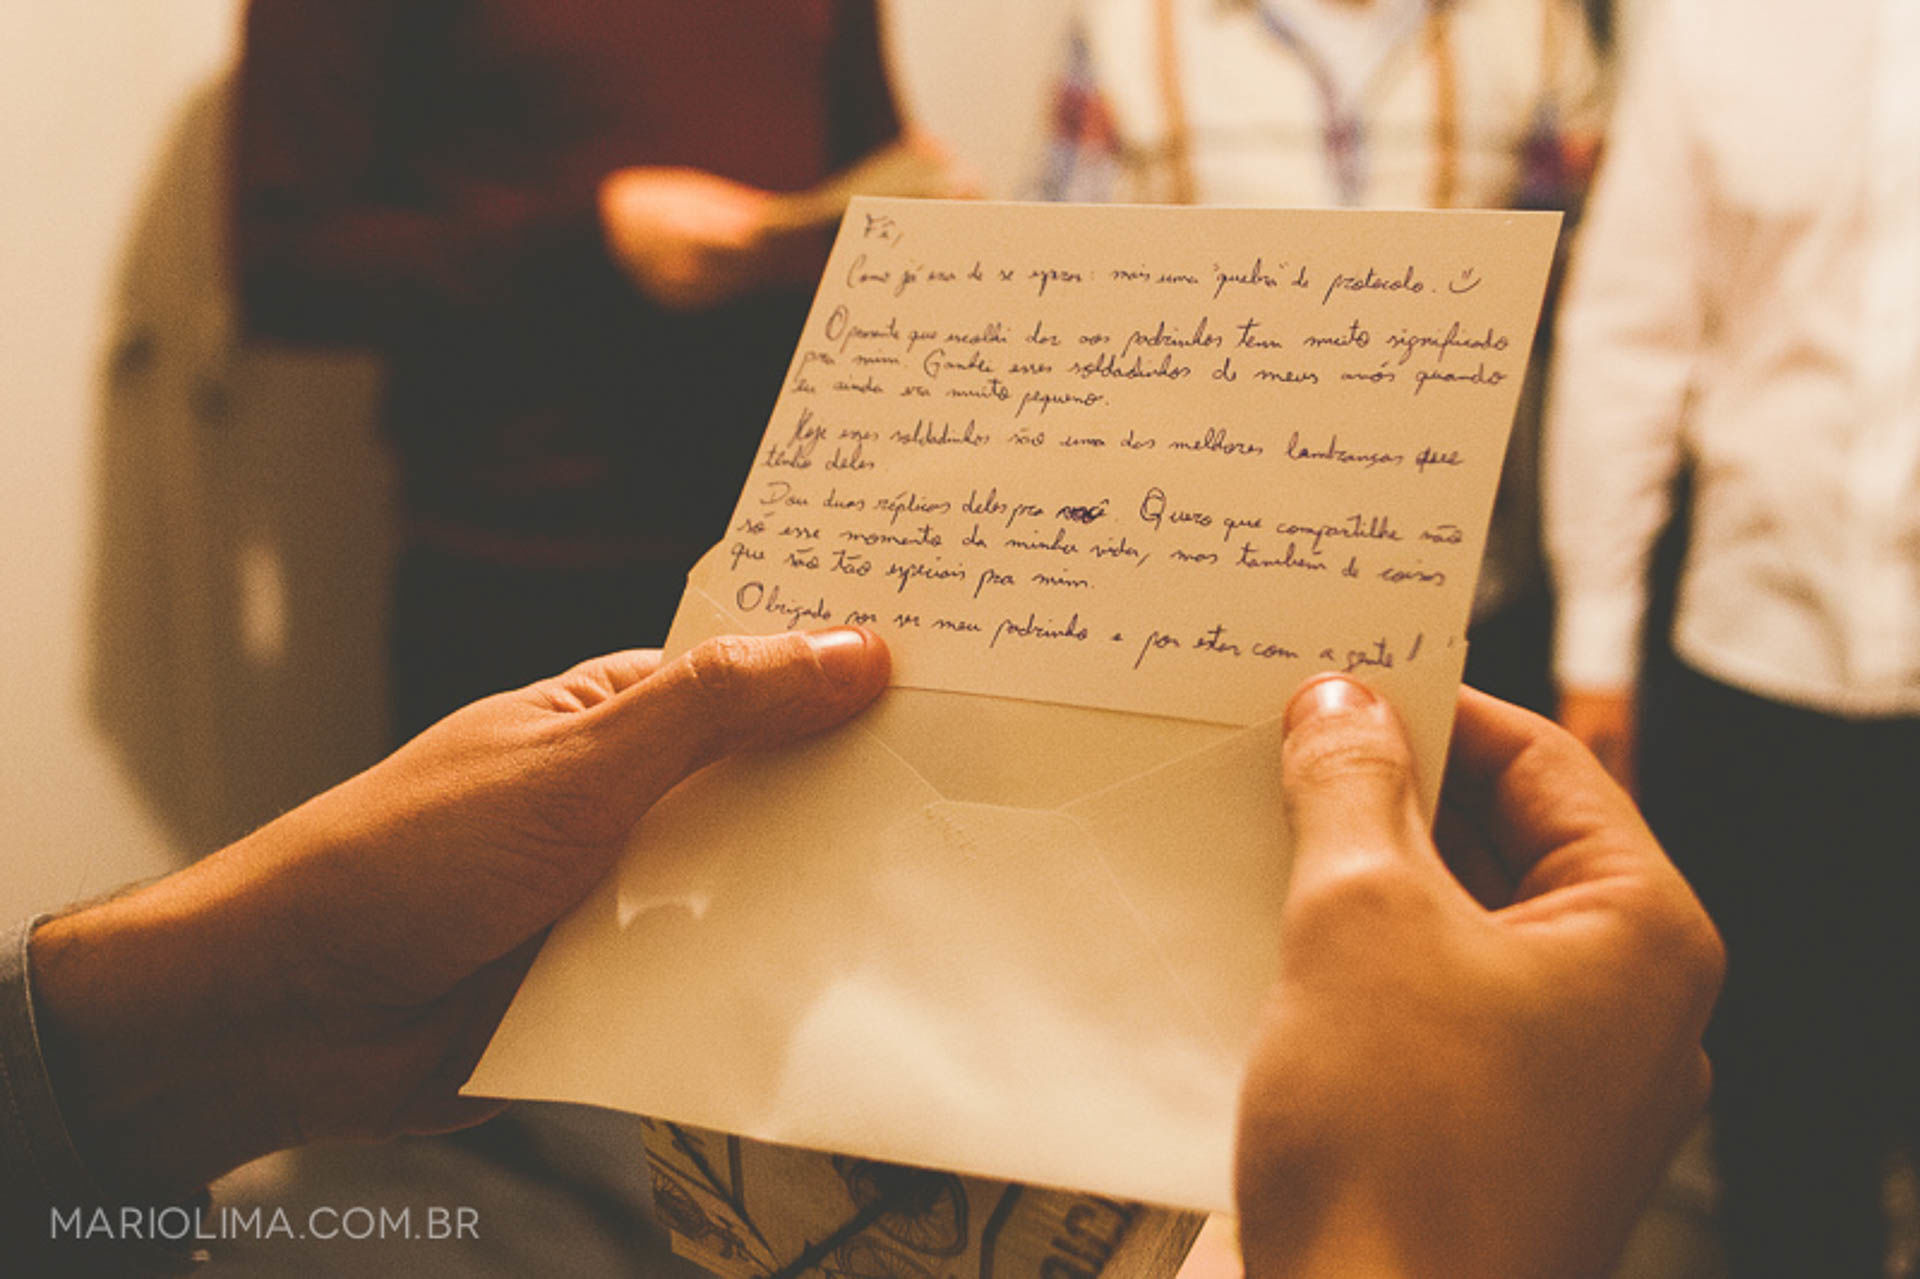 Fê,
Como já era de se esperar: mais uma "quebra" de protocolo.
O presente que escolhi dar aos padrinhos tem muito significado
pra mim. Ganhei esses soldadinhos de meus avós quando
eu ainda era muito pequeno.
Hoje esses soldadinhos são uma das melhores lembranças que
tenho deles.
Dou duas réplicas deles pra você. Quero que compartilhe não
só esse momento da minha vida, mas também de coisas
que são tão especiais pra mim.
Obrigado por ser meu padrinho e por estar com a gente!
MARIOLIMA.COM.BR